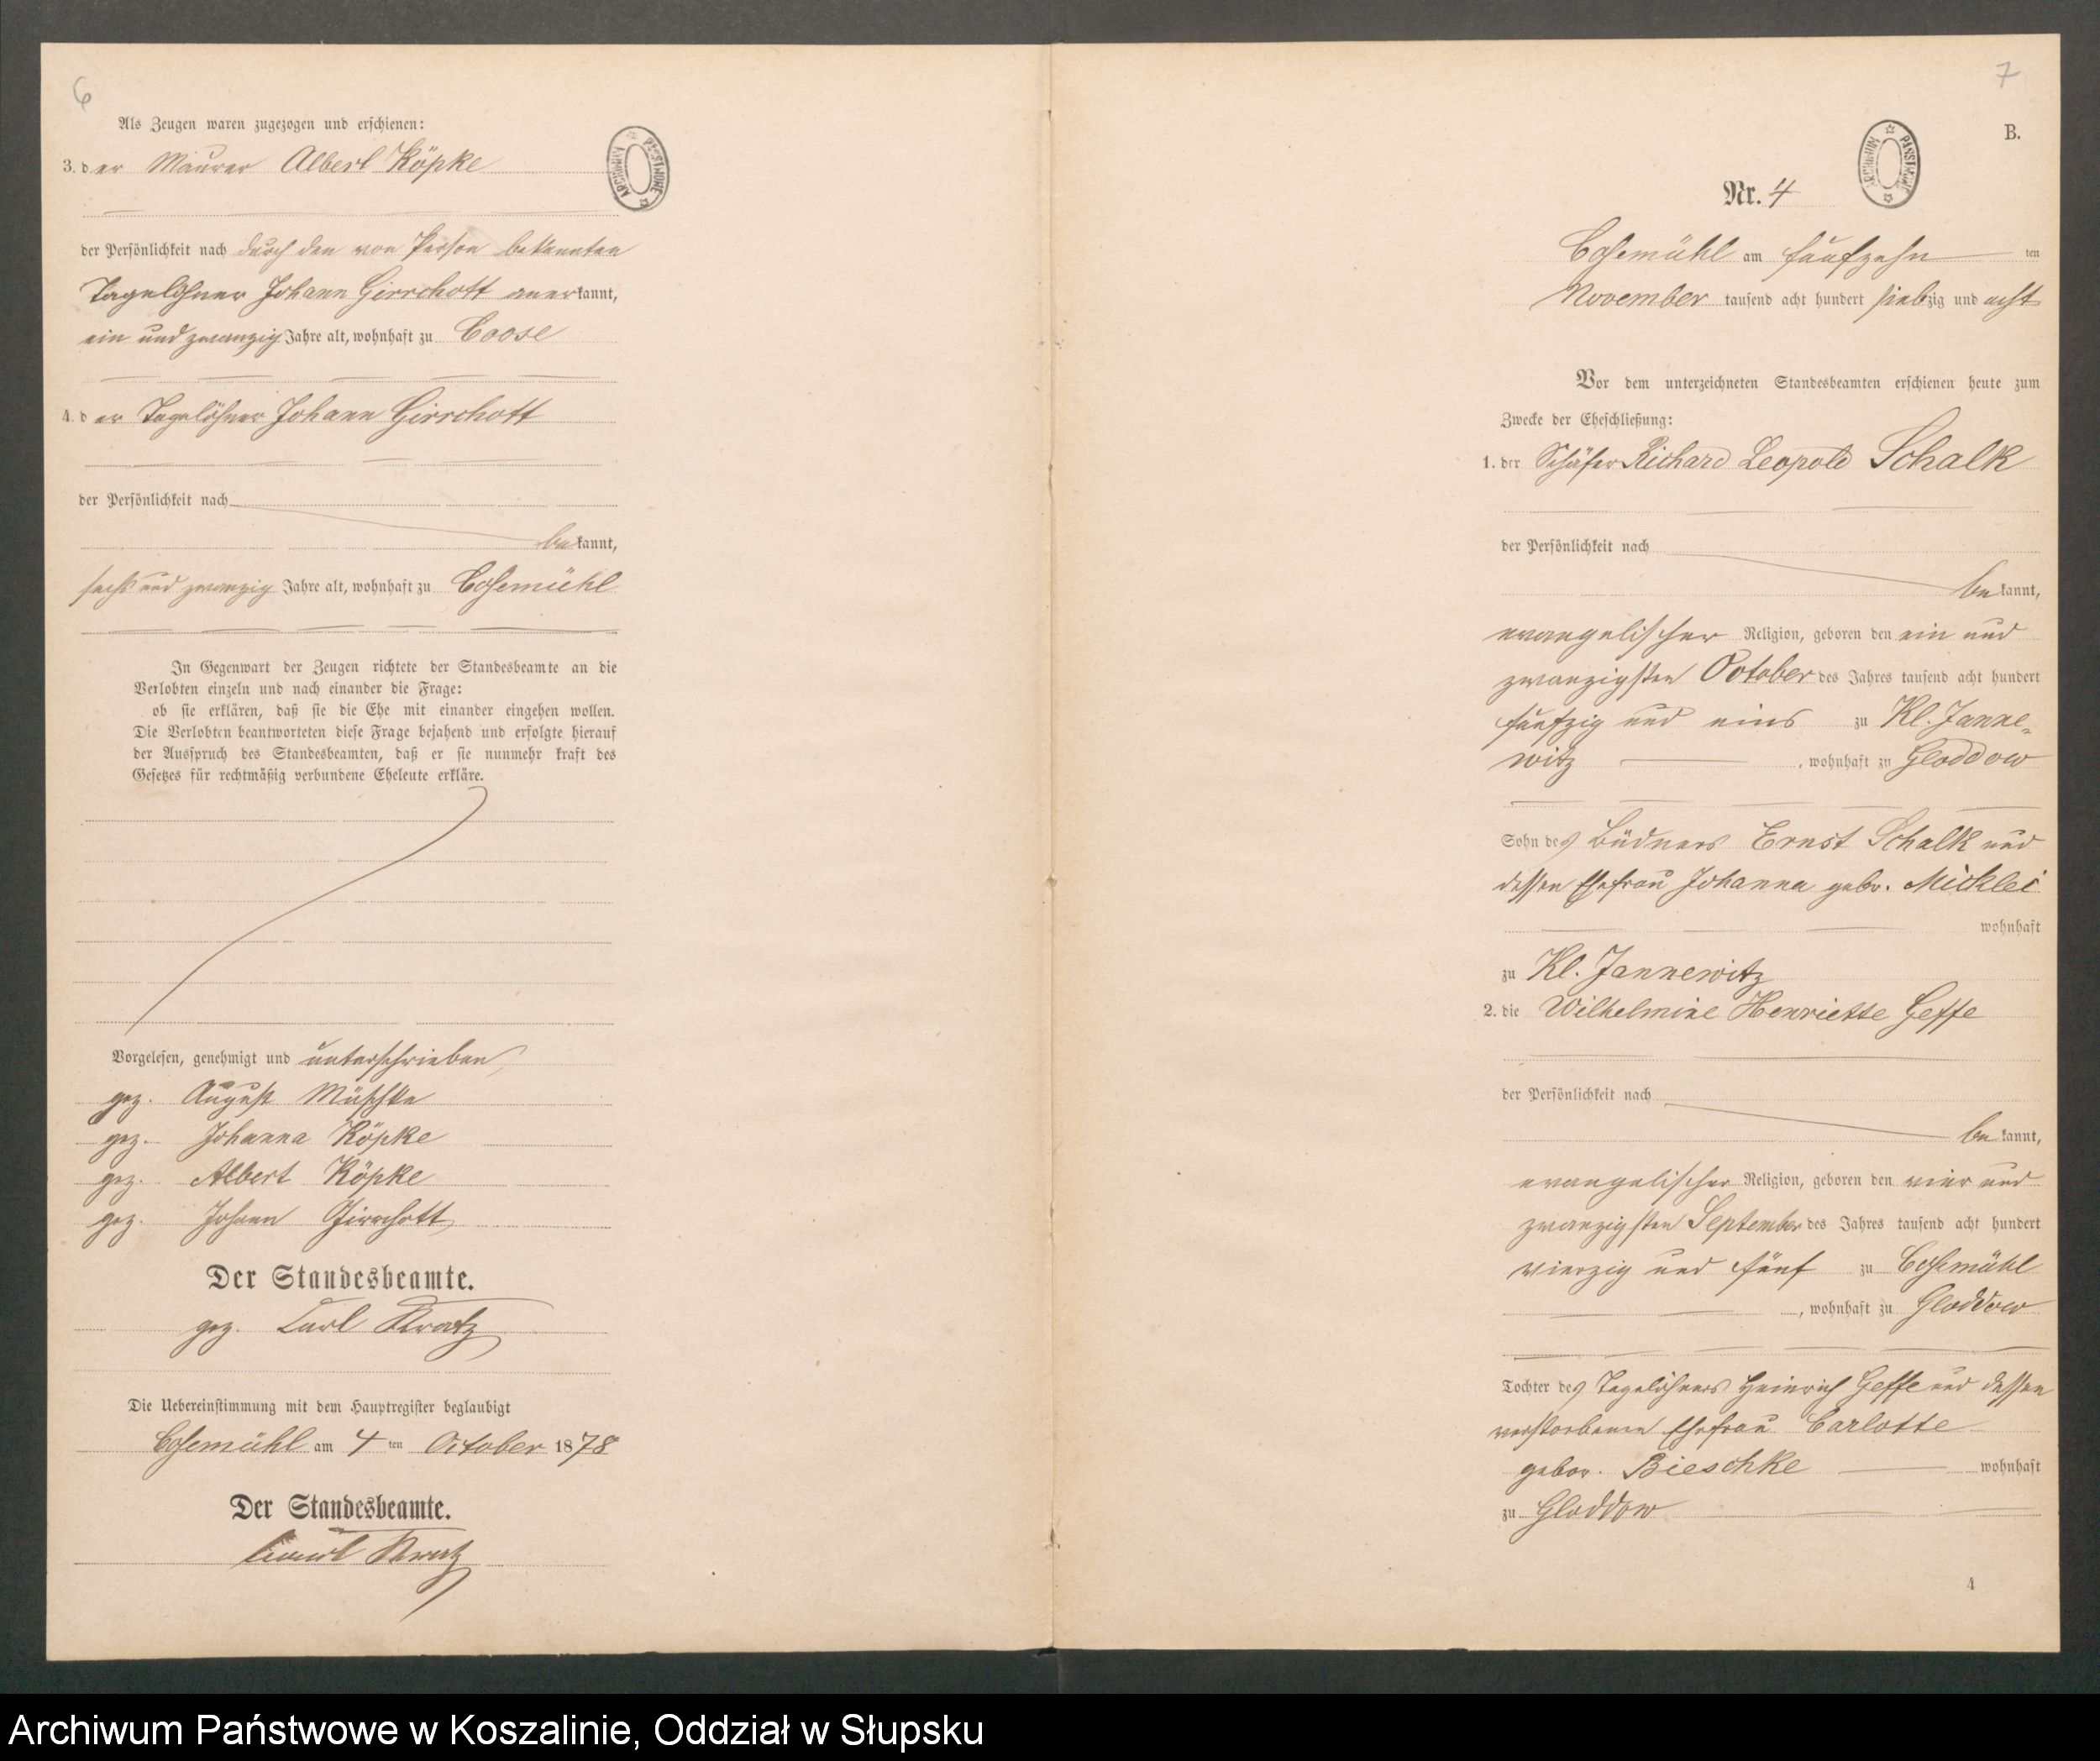 6
Als Zeugen waren zugezogen und erschienen:
3. der Maurer Albert Köpke
ARCHIWUM PAŃSTWOWE
der Persönlichkeit nach durch den von Person bekannten
Tagelöhner Johann Girrchott anerkannt,
ein und zwanzig Jahre alt, wohnhaft zu Coose
4. der Tagelöhner Johann Girrchott
der Persönlichkeit nach
bekannt,
sechs und zwanzig Jahre alt, wohnhaft zu Cosemühl
In Gegenwart der Zeugen richtete der Standesbeamte an die
Verlobten einzeln und nach einander die Frage:
ob sie erklären, daß sie die Ehe mit einander eingehen wollen.
Die Verlobten beantworteten diese Frage bejahend und erfolgte hierauf
der Ausspruch des Standesbeamten, daß er sie nunmehr kraft des
Gesetzes für rechtmäßig verbundene Eheleute erkläre.
Vorgelesen, genehmigt und unterschrieben
gez. August Müschke
gez. Johanna Köpke
gez. Albert Köpke
gez. Johann Girrchott
Der Standesbeamte.
gez. Carl Kratz
Die Uebereinstimmung mit dem Hauptregister beglaubigt
Cosemühl am 4 ten October 1878
Der Standesbeamte.
Carl Kratz
7
B.
ARCHIWUM PAŃSTWOWE
Nr. 4
Cosemühl am fünfzehn ten
November tausend acht hundert siebzig und acht
Vor dem unterzeichneten Standesbeamten erschienen heute zum
Zwecke der Eheschließung:
1. der Schäfer Richard Leopold Schalk
der Persönlichkeit nach
bekannt,
evangelischer Religion, geboren den ein und
zwanzigsten October des Jahres tausend acht hundert
fünfzig und eins zu Kl. Janne-
witz, wohnhaft zu Gloddow
Sohn des Büdners Ernst Schalk und
dessen Ehefrau Johanna gebr. Micklei
wohnhaft
zu Kl. Jannewitz
2. die Wilhelmine Henriette Geffe
der Persönlichkeit nach
bekannt,
evangelischer Religion, geboren den vier und
zwanzigsten September des Jahres tausend acht hundert
vierzig und fünf zu Cosemühl
, wohnhaft zu Gloddow
Tochter des Tagelöhners Heinrich Geffe und dessen
verstorbenen Ehefrau Carlotte
gebor. Bieschke wohnhaft
zu Gloddow
4
Archiwum Państwowe w Koszalinie, Oddział w Słupsku